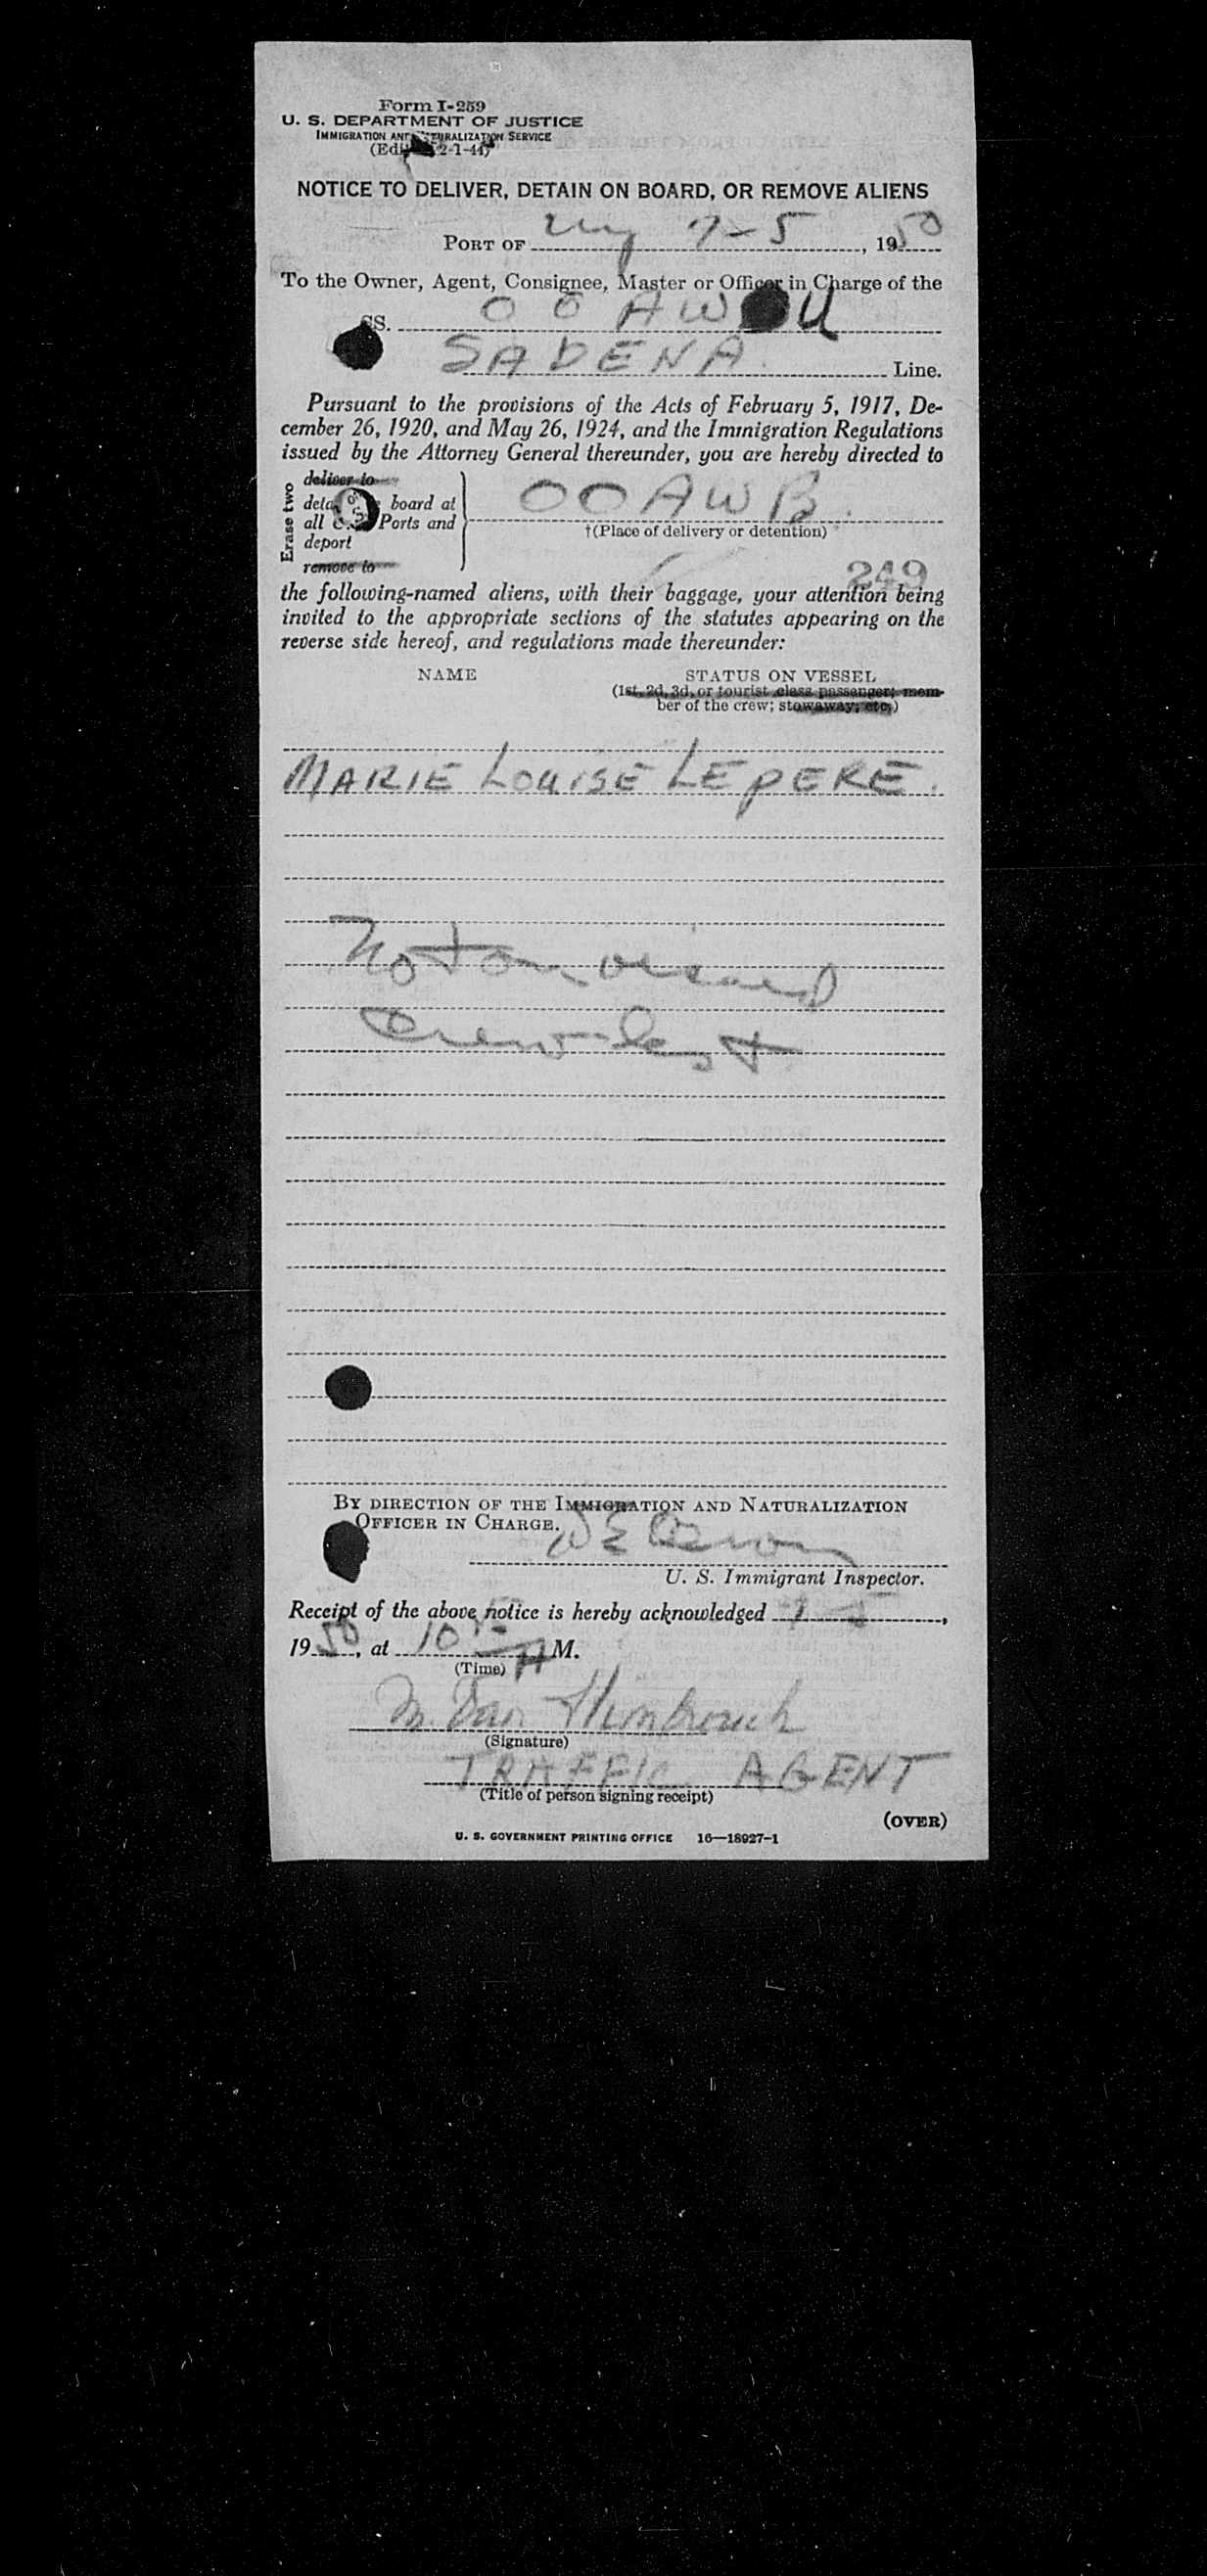 Form I-259
U. S. DEPARTMENT OF JUSTICE
IMMIGRATION AND NATURALIZATION SERVICE
2-1-44)
NOTICE TO DELIVER, DETAIN ON BOARD, OR REMOVE ALIENS
PORT OF NY 7-5, 1950
To the Owner, Agent, Consignee, Master or Officer in Charge of the
SS. OO AW
SABENA Line.
Pursuant to the provisions of the Acts of February 5, 1917, De-
cember 26, 1920, and May 26, 1924, and the Immigration Regulations
issued by the Attorney General thereunder, you are hereby directed to
Erase two
deliver to
board at
all Ports and
deport
remove to
OOAWB.
†(Place of delivery or detention)
249
the following-named aliens, with their baggage, your attention being
invited to the appropriate sections of the statutes appearing on the
reverse side hereof, and regulations made thereunder:
NAME STATUS ON VESSEL
(1st, 2d, 3d, or tourist class passenger; mem-
ber of the crew; stowaway; etc.)
MARIE LOUISE LEPERE.
Not on visaed
Crew-list
BY DIRECTION OF THE IMMIGRATION AND NATURALIZATION
OFFICER IN CHARGE.
U. S. Immigrant Inspector.
Receipt of the above notice is hereby acknowledged 7-5,
1950, at 10 AM.
(Time)
M. Van
(Signature)
TRAFFIC AGENT
(Title of person signing receipt)
(OVER)
U. S. GOVERNMENT PRINTING OFFICE 16—18927-1